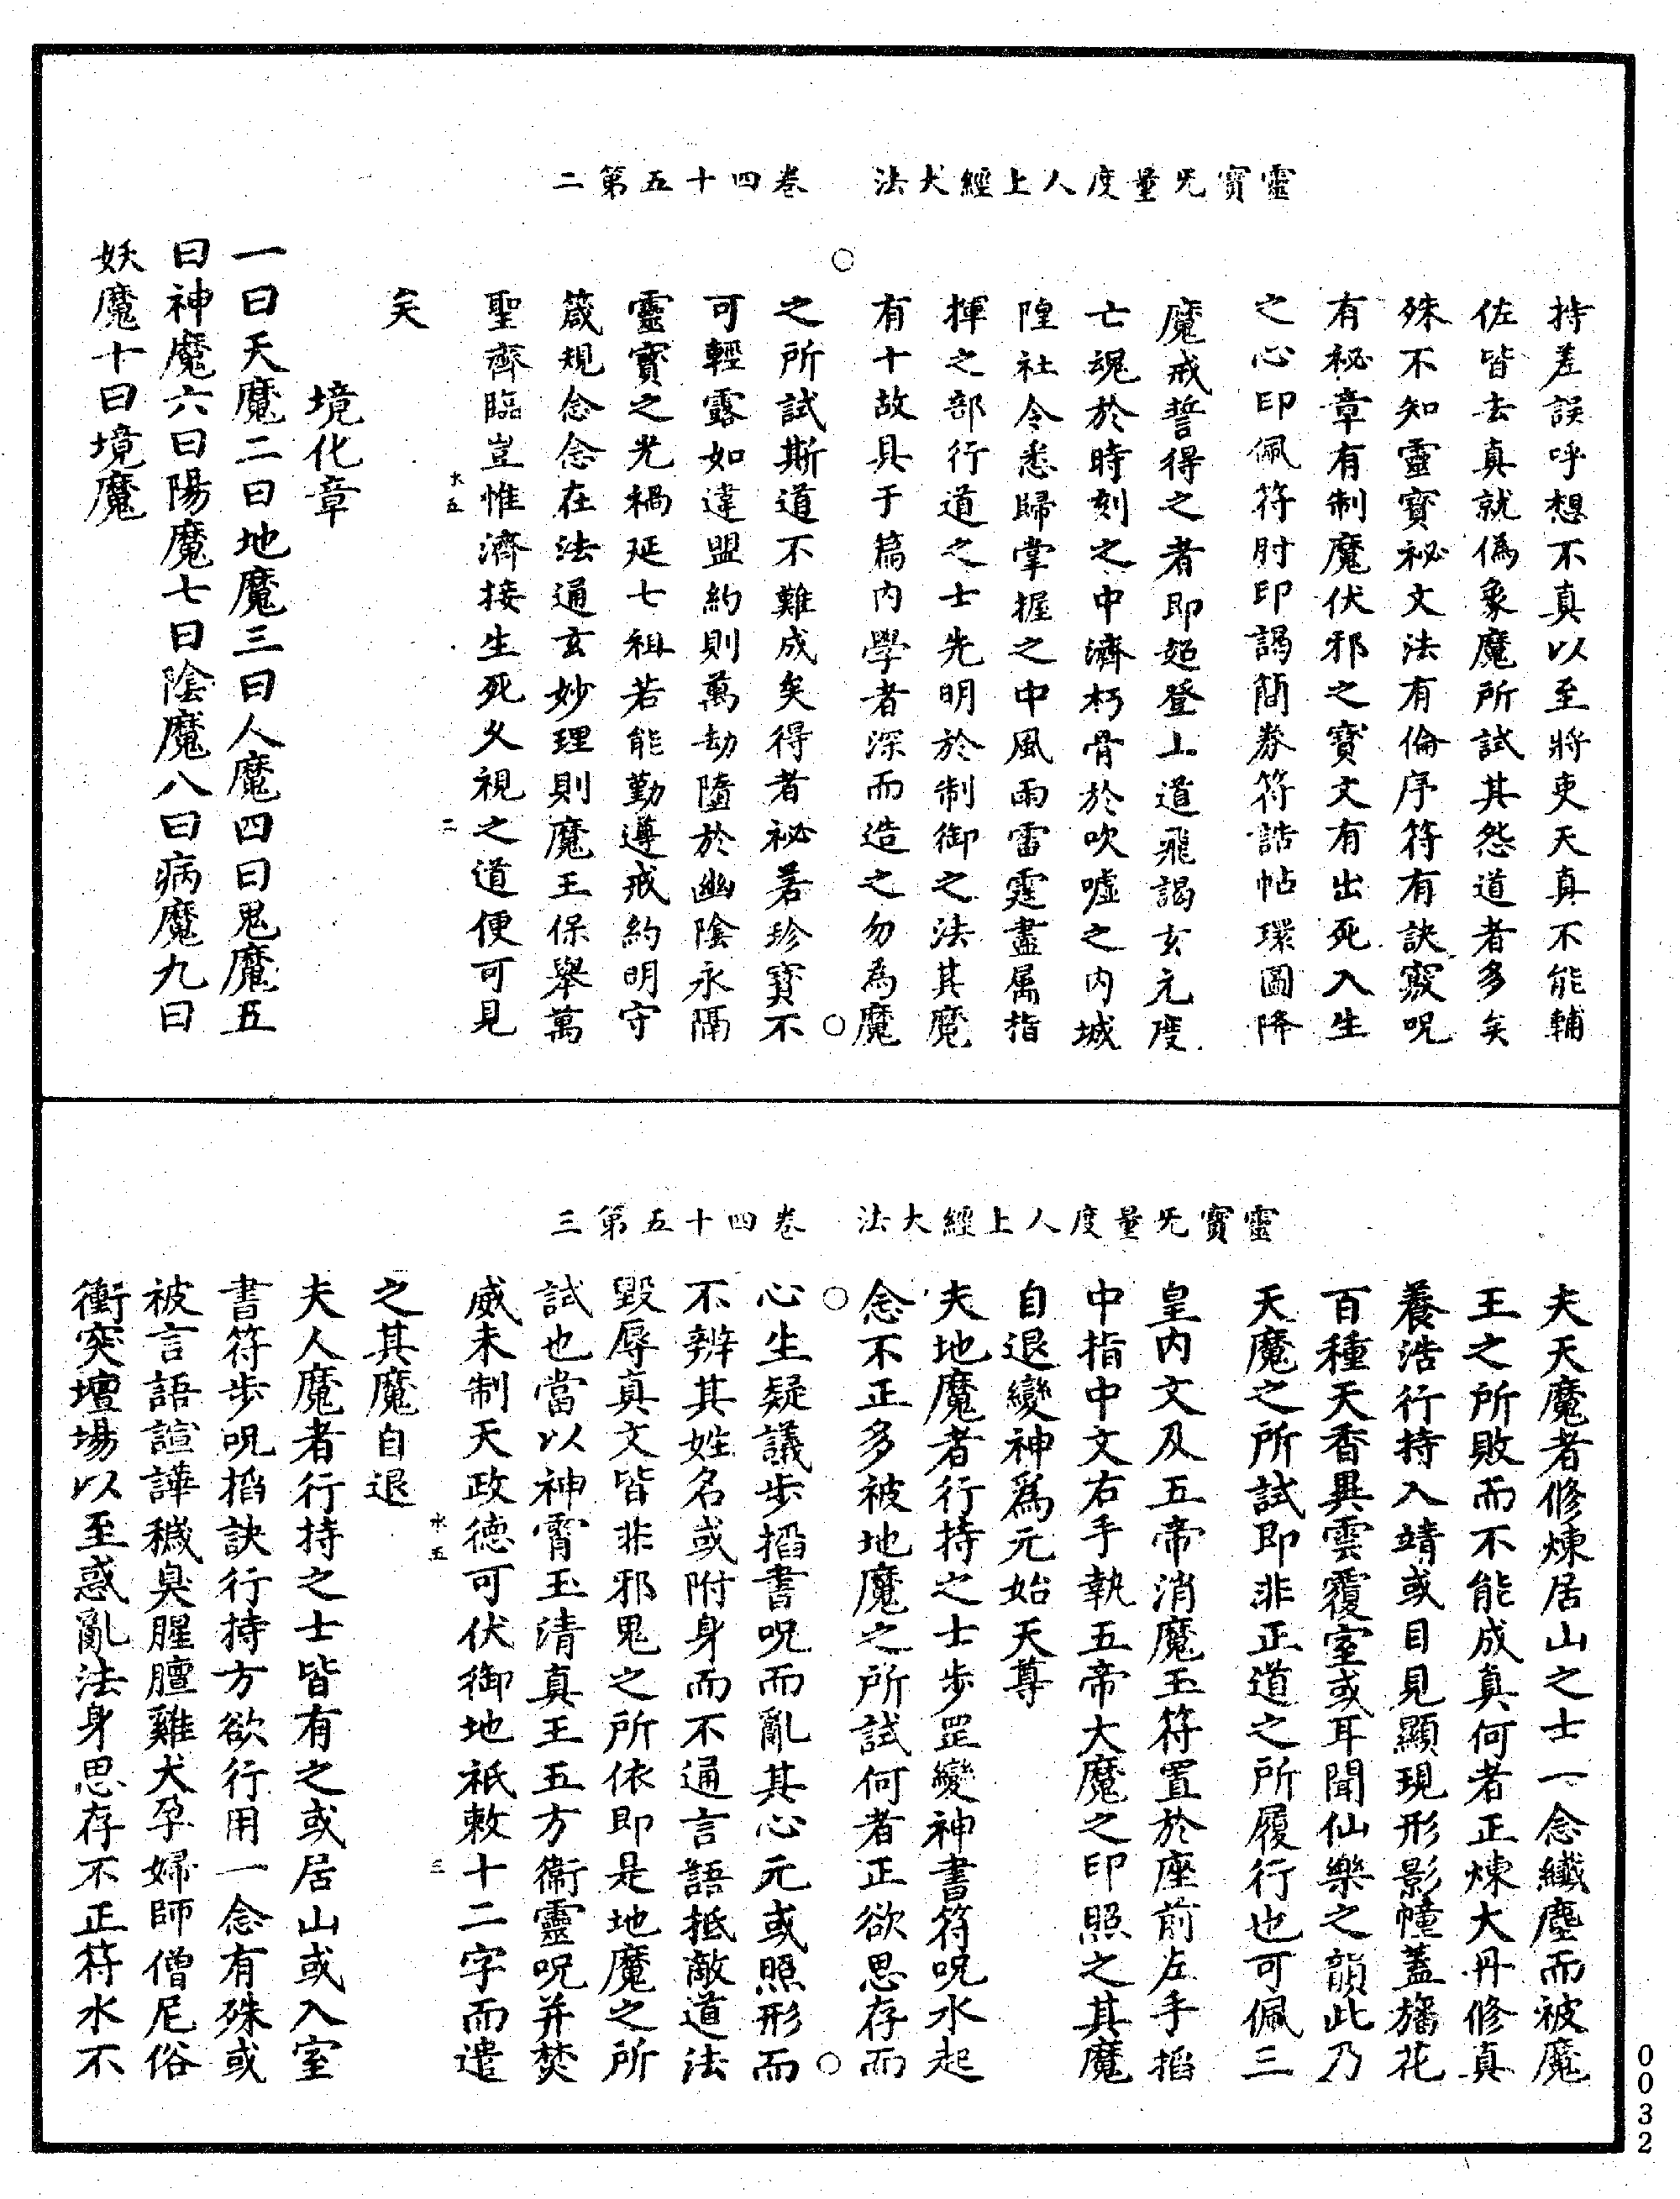 靈寶旡量度人上經大法　卷四十五第二
持差誤呼想不真以至將吏天真不能輔
佐皆去真就僞象魔所試其怨道者多矣
殊不知靈寶祕文法有倫序符有訣竅呪
有祕章有制魔伏邪之寶文有出死入生
之心印佩符肘印謁簡券符誥帖環圖降
魔戒誓得之者即超登上道飛謁玄元度
亡魂於時刻之中濟朽骨於吹噓之內城
隍社令悉歸掌握之中風雨雷霆盡属指
揮之部行道之士先明於制御之法其魔
有十故具于篇內學者深而造之勿為魔
之所試斯道不難成矣得者祕若珍寶不
可輕露如違盟約則萬劫墮於幽陰永隔
靈寶之光禍延七祖若能勤遵戒約明守
箴規念念在法通玄妙理則魔王保舉萬
聖齊臨豈惟濟接生死久視之道便可見
水五　二
矣
境化章
一曰天魔二曰地魔三曰人魔四曰鬼魔五
曰神魔六曰陽魔七曰陰魔八曰病魔九曰
妖魔十曰境魔
靈寶旡量度人上經大法　卷四十五第三
夫天魔者修煉居山之士一念纖塵而被魔
王之所敗而不能成真何者正煉大丹修真
養浩行持入靖或目見顯現形影幢蓋旛花
百種天香異雲覆室或耳聞仙樂之韻此乃
天魔之所試即非正道之所履行也可佩三
皇內文及五帝消魔玉符置於座前左手搯
中指中文右手執五帝大魔之印照之其魔
自退變神爲元始天尊
夫地魔者行持之士步罡變神書符呪水起
念不正多被地魔之所試何者正欲思存而
心生疑議步搯書呪而亂其心元或照形而
不辨其姓名或附身而不通言語抵敵道法
毀辱真文皆非邪鬼之所依即是地魔之所
試也當以神霄玉清真王五方衞靈呪并焚
威未制天政德可伏御地祇敕十二字而遣
水五　三
之其魔自退
夫人魔者行持之士皆有之或居山或入室
書符步呪搯訣行持方欲行用一念有殊或
被言語諠譁穢臭腥膻雞犬孕婦師僧尼俗
衝突壇場以至惑亂法身思存不正符水不
0032